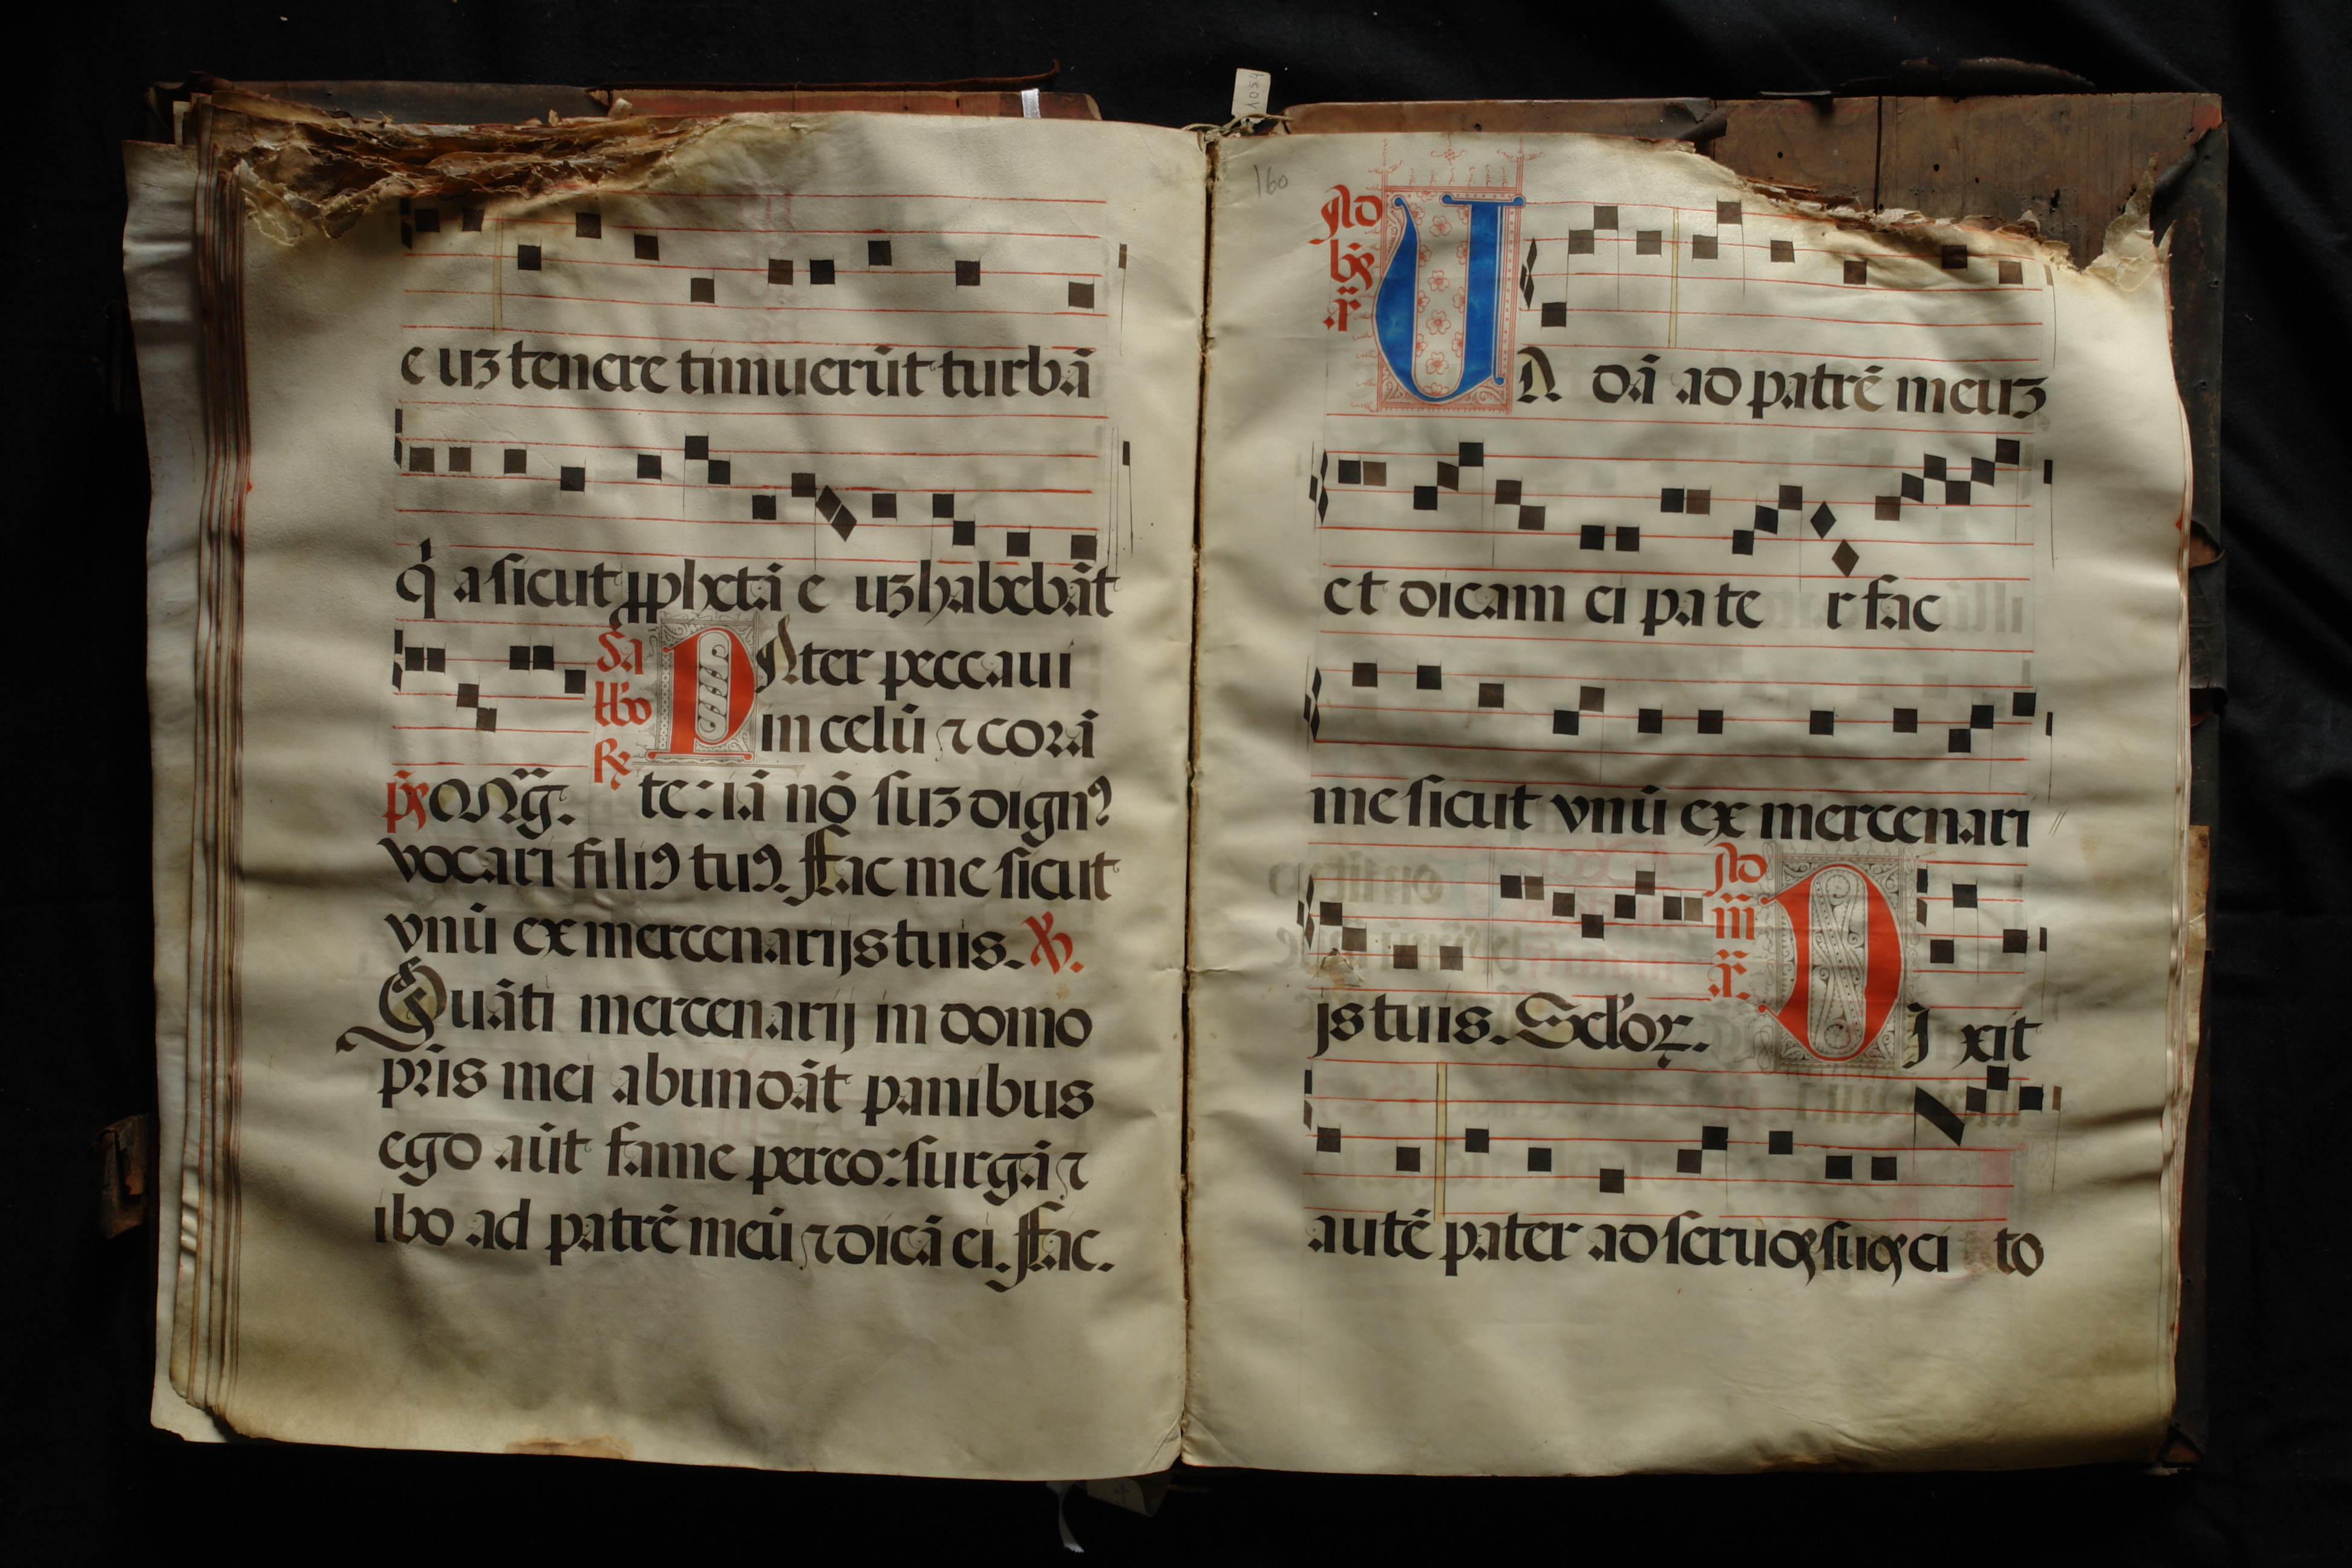 e uꝫ tenere timuerūt turbā
q̇ a sicut ꝓphetā e uꝫ habebāt
Sa
tƀo
℟
PAter peccaui
in celū ⁊ corā
p̄s MAg̅. te: iā nō suꝫ dignꝰ
vocari filiꝰ tuꝰ. Fac me sicut
vnū ex mercenarijs tuis. ℣.
Quāti mercenarij in domo
pr̄is mei abundāt panibus
ego aūt fame pereo: surgā ⁊
ibo ad patrē meū ⁊ dicā ei. Fac.
160
1054
Ad
VA dā ad patrē meuꝫ
et dicam ei pa te r fac
me sicut vnū ex mercenari
js tuis. Sc̄loꝝ.
Ad
iii
DI xit
autē pater ad seruos suos ci to